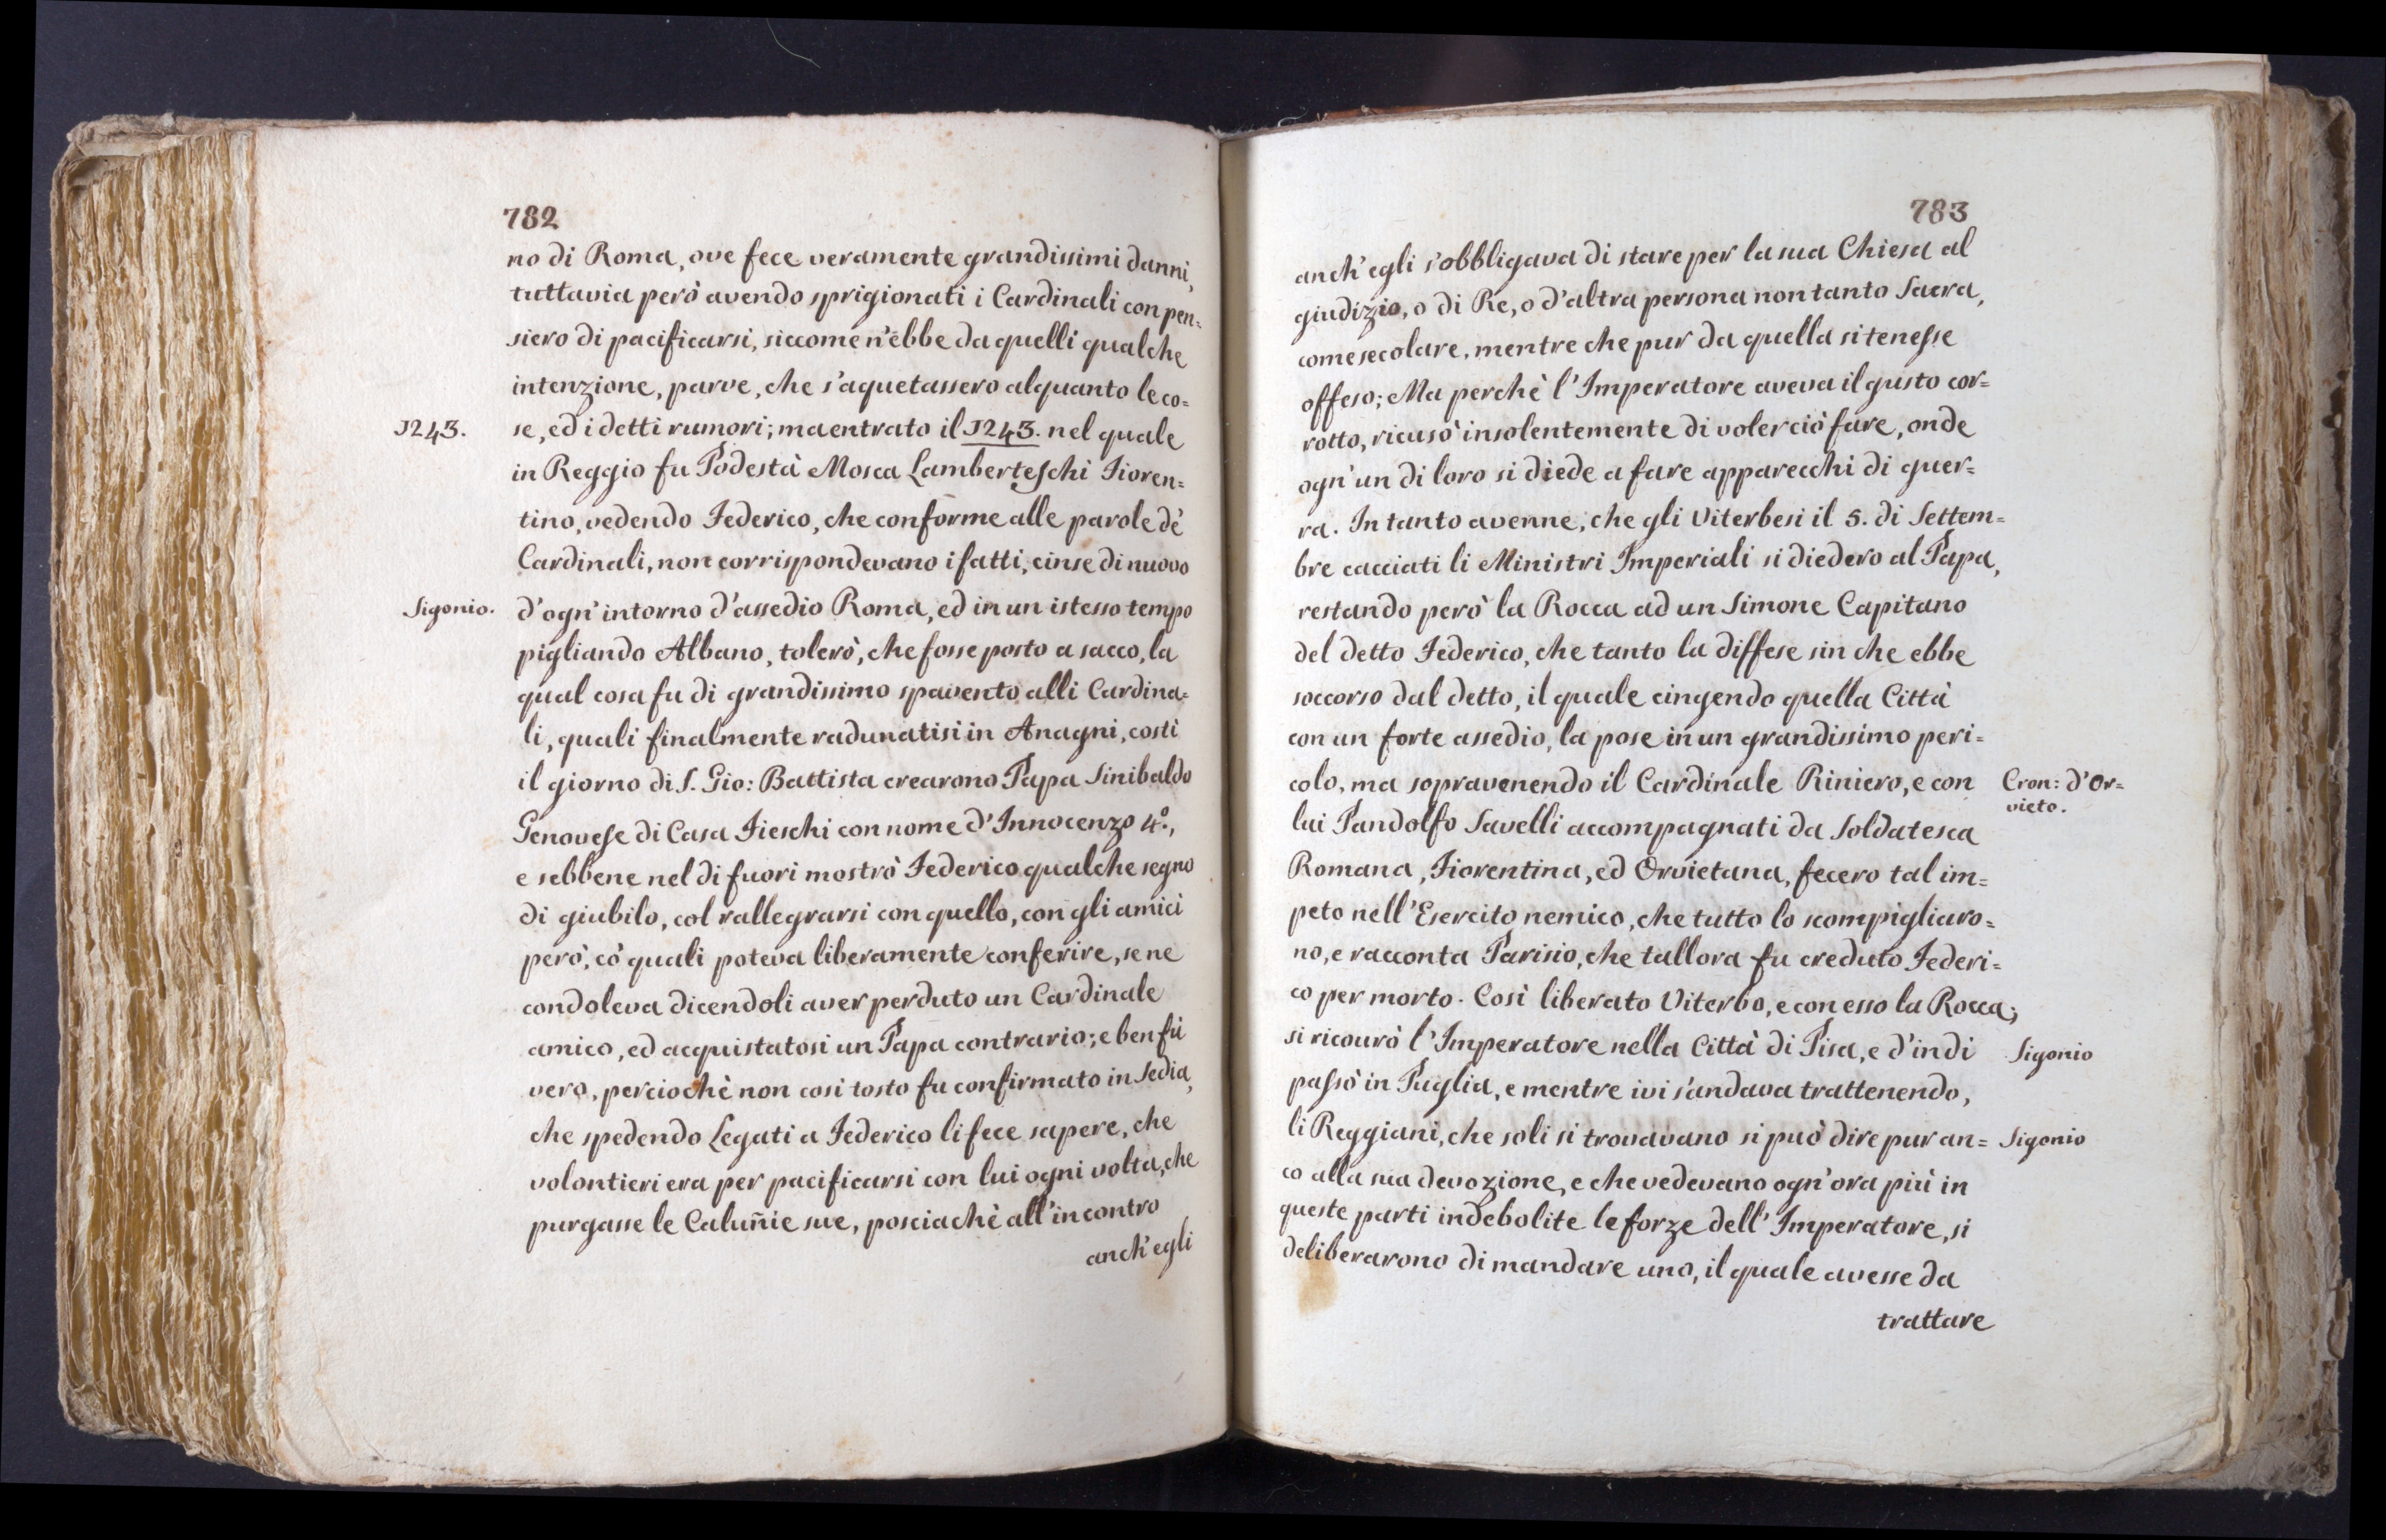 782
no di Roma, ove fece veramente grandissimi danni,
tuttavia però avendo sprigionati i Cardinali con pen=
siero di pacificarsi, siccome n'ebbe da quelli qualche
intenzione, parve, che s'aquetassero alquanto le co=
1243.
se, ed i detti rumori; ma entrato il 1243. nel quale
in Reggio fu Podestà Mosca Lamberteschi Fioren=
tino, vedendo Federico, che conforme alle parole dè
Cardinali, non corrispondevano i fatti, cinse di nuovo
Sigonio.
d'ogn'intorno d'assedio Roma, ed in un istesso tempo
pigliando Albano, tolerò, che fosse posto a sacco, la
qual cosa fu di grandissimo spavento alli Cardina=
li, quali finalmente radunatisi in Anagni, costì
il giorno di S. Gio: Battista crearono Papa Sinibaldo
Genovese di Casa Fieschi con nome d'Innocenzo 4º.,
e sebbene nel di fuori mostrò Federico qualche segno
di giubilo, col rallegrarsi con quello, con gli amici
però, cò quali poteva liberamente conferire, se ne
condoleva dicendoli aver perduto un Cardinale
amico, ed acquistatosi un Papa contrario; e ben fù
vero, perciochè non così tosto fu confirmato in Sedia,
che spedendo Legati a Federico li fece sapere, che
volontieri era per pacificarsi con lui ogni volta, che
purgasse le Caluñie sue, posciachè all'incontro
anch'egli
783
anch'egli s'obbligava di stare per la sua Chiesa al
giudizio, o di Re, o d'altra persona non tanto Sacra,
come secolare, mentre che pur da quella si tenesse
offeso; Ma perchè l'Imperatore aveva il gusto cor=
rotto, ricusò insolentemente di voler ciò fare, onde
ogn'un di loro si diede a fare apparecchi di guer=
ra. In tanto avenne, che gli Viterbesi il 5. di Settem=
bre cacciati li Ministri Imperiali si diedero al Papa,
restando però la Rocca ad un Simone Capitano
del detto Federico, che tanto la diffese sin che ebbe
soccorso dal detto, il quale cingendo quella Città
con un forte assedio, la pose in un grandissimo peri=
colo, ma sopravenendo il Cardinale Riniero, e con
Cron: d'Or=
vieto.
lui Pandolfo Savelli accompagnati da Soldatesca
Romana, Fiorentina, ed Orvietana, fecero tal im=
peto nell'Esercito nemico, che tutto lo scompigliaro=
no, e racconta Parisio, che tallora fu creduto Federi=
co per morto. Così liberato Viterbo, e con esso la Rocca;
si ricourò l'Imperatore nella Città di Pisa, e d'indi
Sigonio
passò in Puglia, e mentre ivi s'andava trattenendo,
li Reggiani, che soli si trovavano si può dire pur an=
Sigonio
co alla sua devozione, e che vedevano ogn'ora più in
queste parti indebolite le forze dell'Imperatore, si
deliberarono di mandare uno, il quale avesse da
trattare